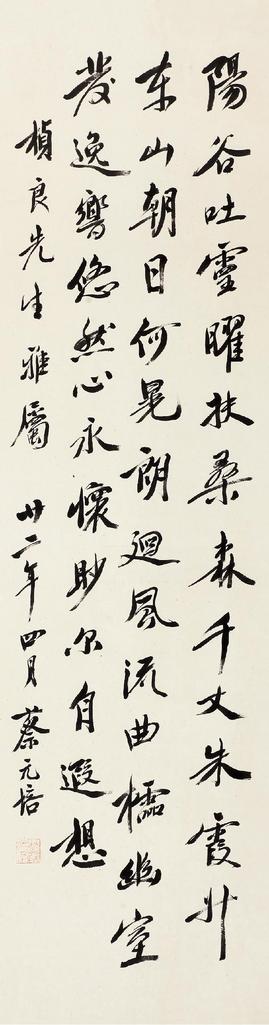 陽谷吐靈曜扶桑森千丈朱霞升
東山朝日何晃朗迴風流曲櫺幽室
發逸響悠然心永懷眇尔自遐想
楨良先生雅屬 廿二年四月蔡元培